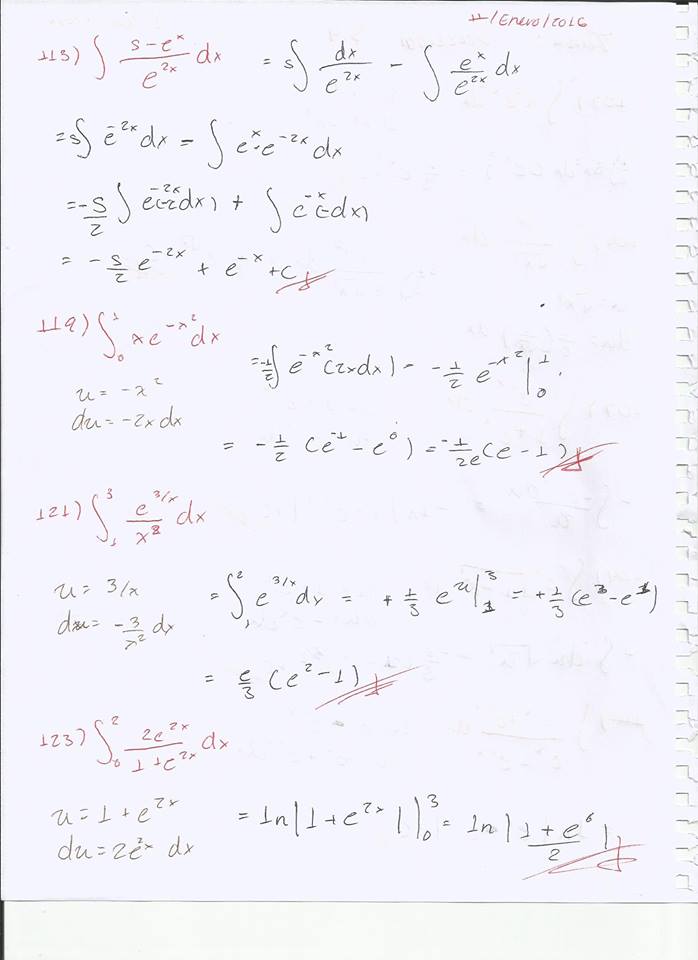 11/Enero/2016
113) ∫ (5-e^x)/e^{2x} dx = 5∫ dx/e^{2x} - ∫ e^x/e^{2x} dx
=5∫ e^{-2x} dx - ∫ e^x·e^{-2x} dx
=-5/2 ∫ e^{-2x}(-2dx) + ∫ e^{-x}(-dx)
= -5/2 e^{-2x} + e^{-x} + C
119) ∫_0^1 x e^{-x^2} dx
=-1/2 ∫ e^{-x^2}(2xdx) = -1/2 e^{-x^2} |_0^1
u = -x^2
du = -2x dx
= -1/2 (e^{-1} - e^0) = -1/2e (e-1)
121) ∫_1^3 e^{3/x}/x^2 dx
u = 3/x
du = -3/x^2 dx
= ∫_1^2 e^{3/x} dx = +1/3 e^u |_1^3 = +1/3 (e^3 - e^1)
= e/3 (e^2 - 1)
123) ∫_0^2 2e^{2x}/(1+e^{2x}) dx
u = 1 + e^{2x}
du = 2e^{2x} dx
= ln|1 + e^{2x}| |_0^3 = ln|(1+e^6)/2|